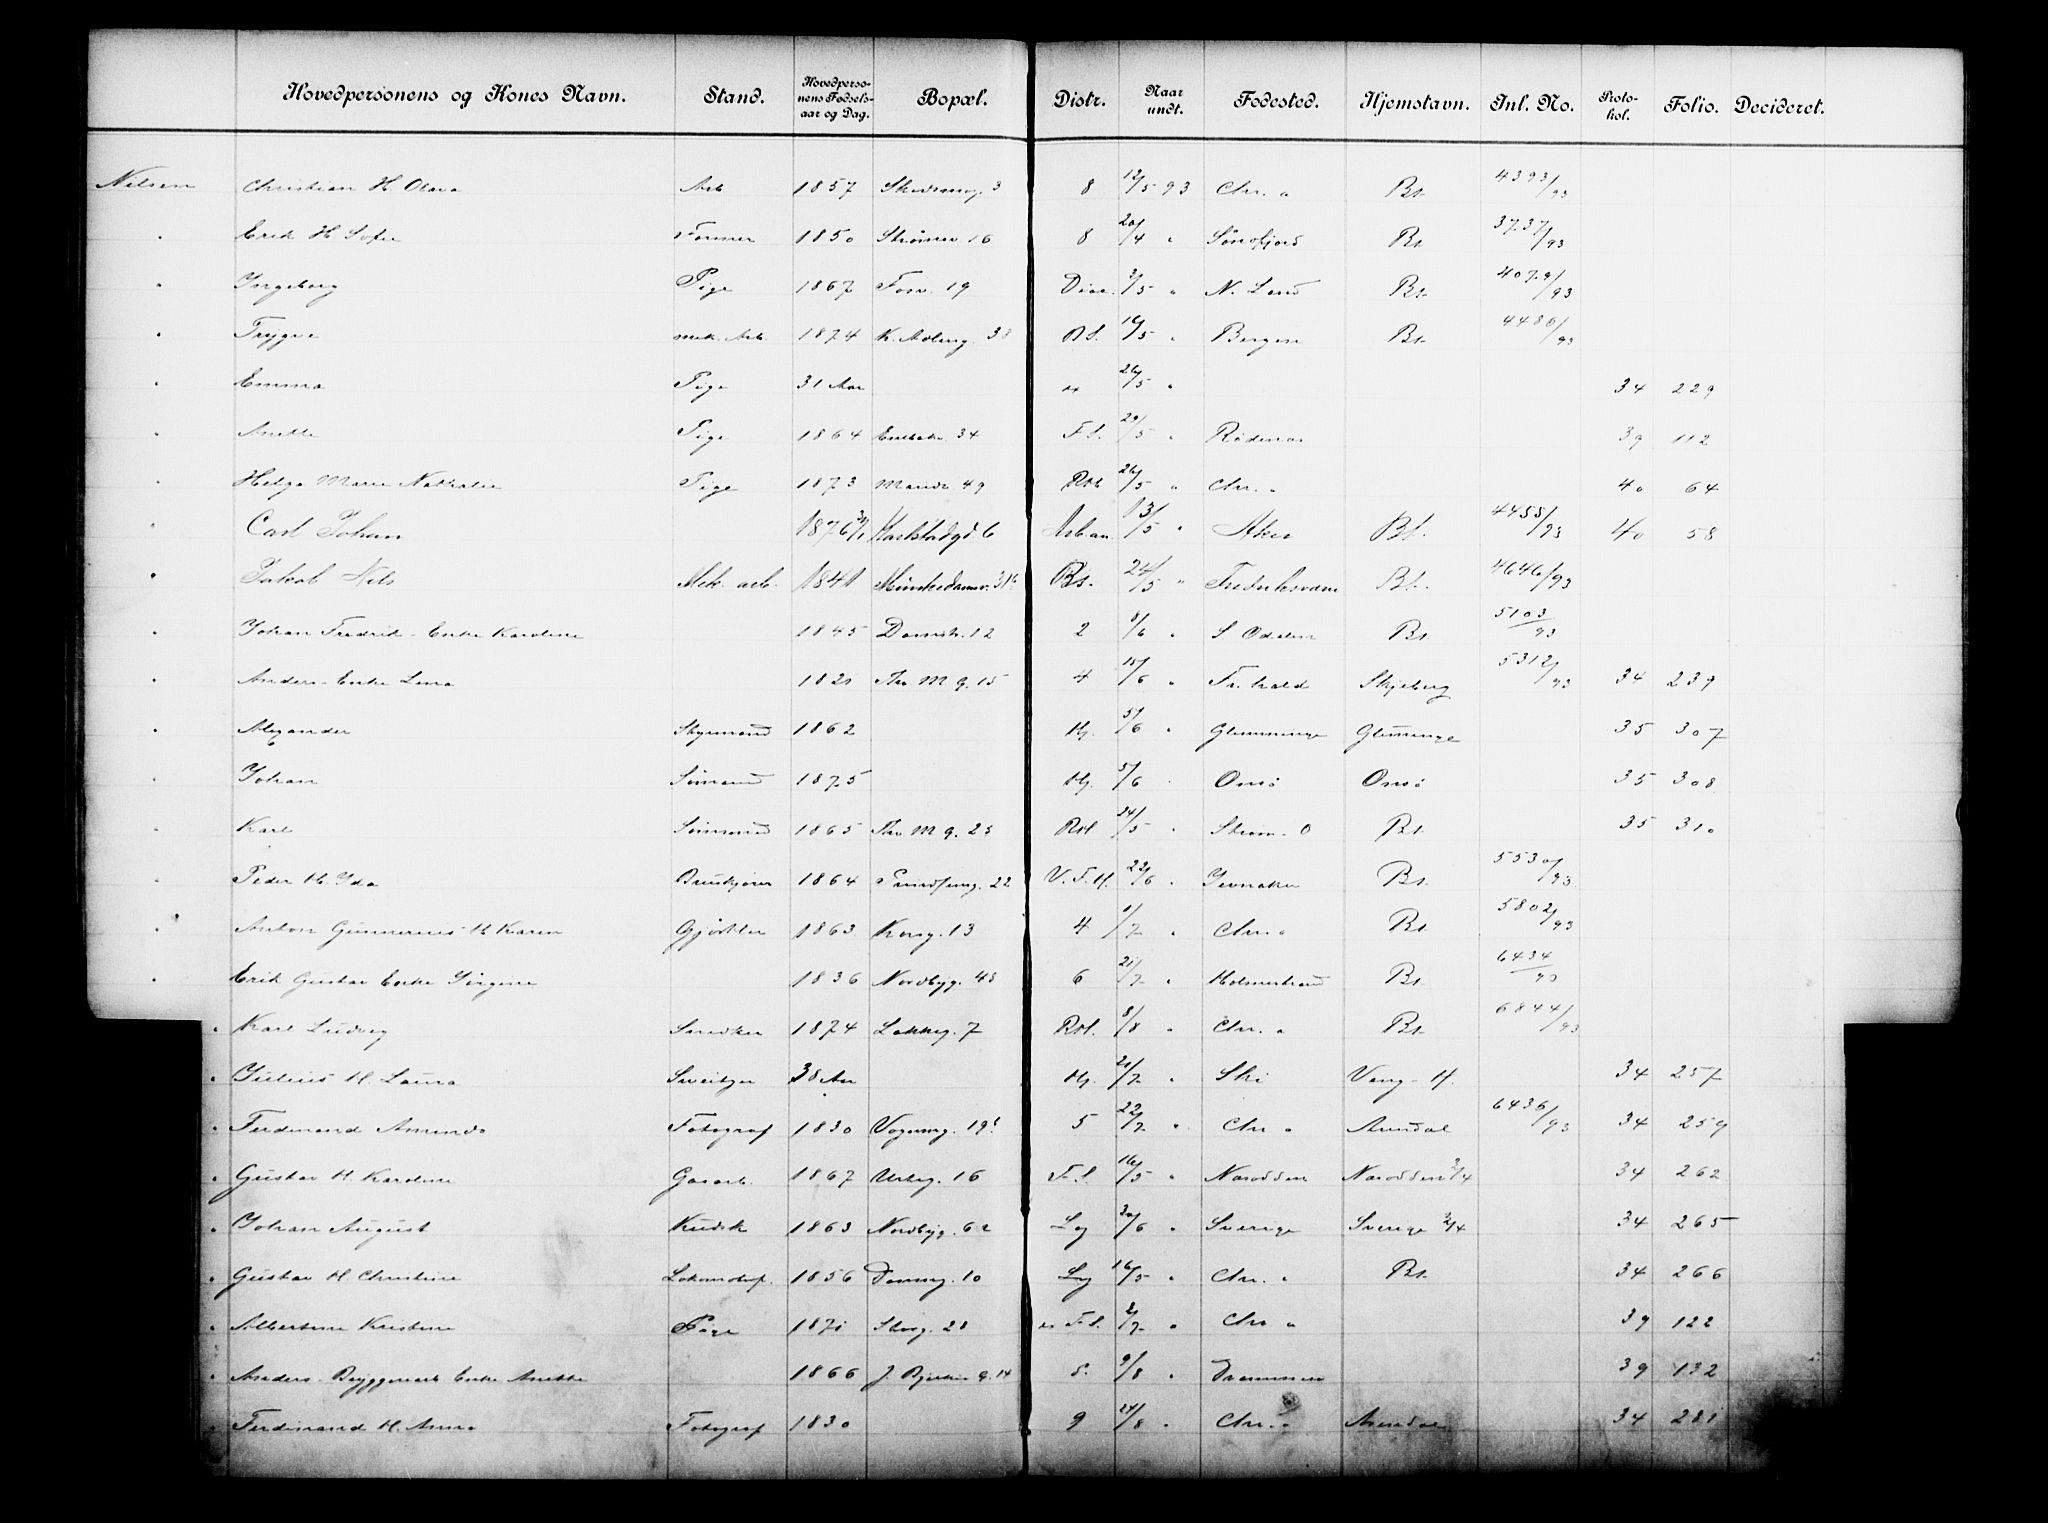 Hovedpersonens og Kones Navn. Stand. Hovedpersonens Fødselsaar og Dag. Bopæl. Distr. Naar undt. Fødested. Hjemstavn. Inl. No. Protokol. Folio. Decideret.
Nilsen Christian H Olava Arb 1857 3 8 12/5 93 Chr. a Bt. 4393/93
" Erik H Sofie Former 1850 16 8 20/4 " Søndfjord Bt. 3737/93
" Ingeborg Pige 1867 Fosv. 19 Diac. 3/5 " N. Land Bt. 4079/93
" Trygve mek. Arb. 1874 R.H. 16/5 " Bergen Bt. 4486/93
" Emma Pige 31 Aar 26/5 " 34 229
" Anette Pige 1864 Enebakv. 34 F.S. 29/5 " Rødenes 39 112
" Helga Marie Nathalie Pige 1873 Maridv. 49 RH 26/5 " Chr. a 40 64
" Carl Johan 1876 Karlstadgd. 6 13/5 " Aker Bt. 4455/93 40 58
" Jakob Nils Mek. arb. 1841 Munkedamsv. Bt. 24/5 " Fredriksværn Bt. 4646/93
" Johan Fredrik - Enke Karoline 1845 Damstr. 12 2 8/6 " S Odalen Bt. 5103/93
" Anders - Enke Lina 1821 Thv M g. 15 4 15/6 " Fr.hald Skjeberg 5312/93 34 239
" Alexander Styrmand 1862 Hj. 5/6 " Glemminge Glemminge 35 307
" Johan Sømand 1875 Hj. 5/6 " Onsø Onsø 35 308
" Karl Sømand 1865 Thv M g. 25 RH. 24/5 " Strøm. O Bt. 35 310
" Peder H. Ida Bruskjører 1864 22 V.F.H. 22/6 " Jevnaker Bt. 5530/93
" Anton Gunnerius H Karen Gjørtler 1863 Kong. 13 4 1/7 " Chr. a Bt. 5802/93
" Erik Gustav Enke Jørgine 1836 Nordbyg. 43 6 21/7 " Holmestrand Bt. 6434/93
" Karl Ludvig Snedker 1874 Løkkeg. 7 RH. 8/8 " Chr. a Bt. 6844/93
" Julius H. Laura Sveitzer 38 Aar Hj. 21/7 " Ski Vang - H. 34 257
" Ferdinand Amanda Fotograf 1830 Vognmg. 5 22/7 " Chr a Arendal 6436/93 34 259
" Gustav H. Karoline Gasarb. 1867 Urteg. 16 F.S. 16/5 " Næsodden Næsodden 3/4 34 262
" Johan August Kudsk 1863 Nordbyg. 62 Lg 20/6 " Sverige Sverige 3/4 34 265
" Gustav H. Christine Lokomotivf. 1856 10 Lg 16/5 " Chr. a Bt. 34 266
" Albertine Kristine Pige 1871 Storg. 28 F.S. 2/7 " Chr a 39 122
" Anders - Bryggearb Enke Anette 1866 J. Bjelkes g. 14 9/8 " Drammen 39 132
" Ferdinand H. Anna Fotograf 1830 9 24/8 " Chr. a Arendal 34 281